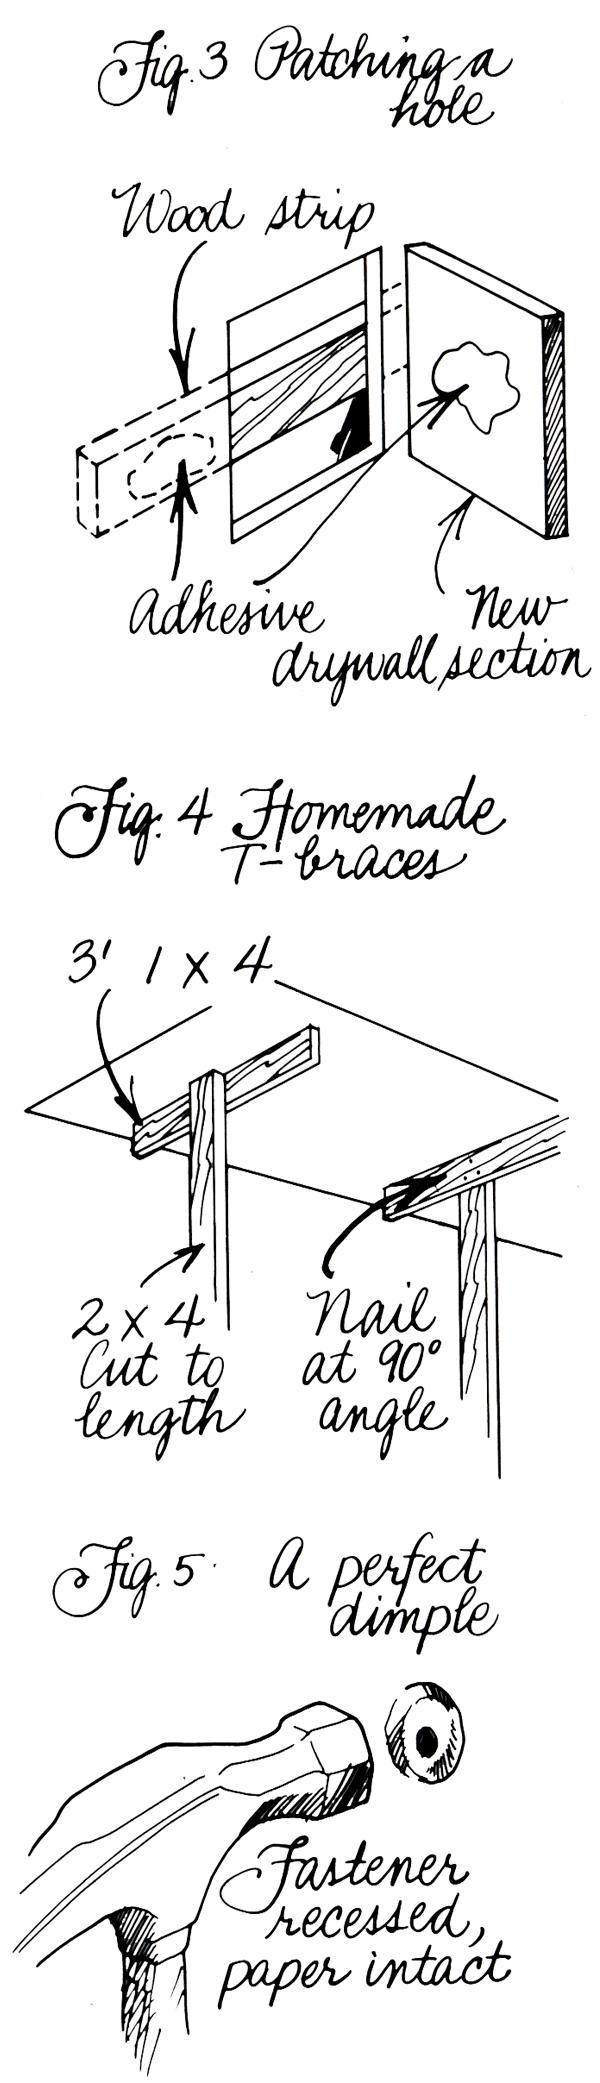 Fig. 3 Patching a
hole
Wood strip
Adhesive
New
drywall section
Fig. 4 Homemade
T-braces
3' 1 x 4
2 x 4
Cut to
length
Nail
at 90°
angle
Fig. 5. A perfect
dimple
Fastener
recessed,
paper intact